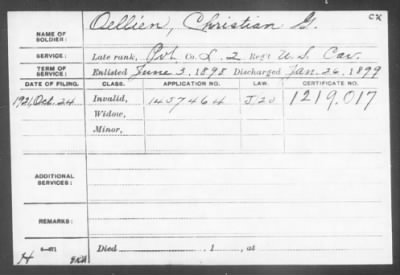 CX
NAME OF SOLDIER: Oellien, Christian G.
SERVICE: Late rank, Pvt Co. L. 2 Reg't U.S. Cav.
TERM OF SERVICE: Enlisted June 3, 1898 Discharged Jan. 26, 1899
DATE OF FILING. CLASS. APPLICATION NO. LAW. CERTIFICATE NO.
1921, Oct. 24 Invalid, 1457464 J20 1219,017
Widow,
Minor,
ADDITIONAL SERVICES:
REMARKS:
Died 1 , at